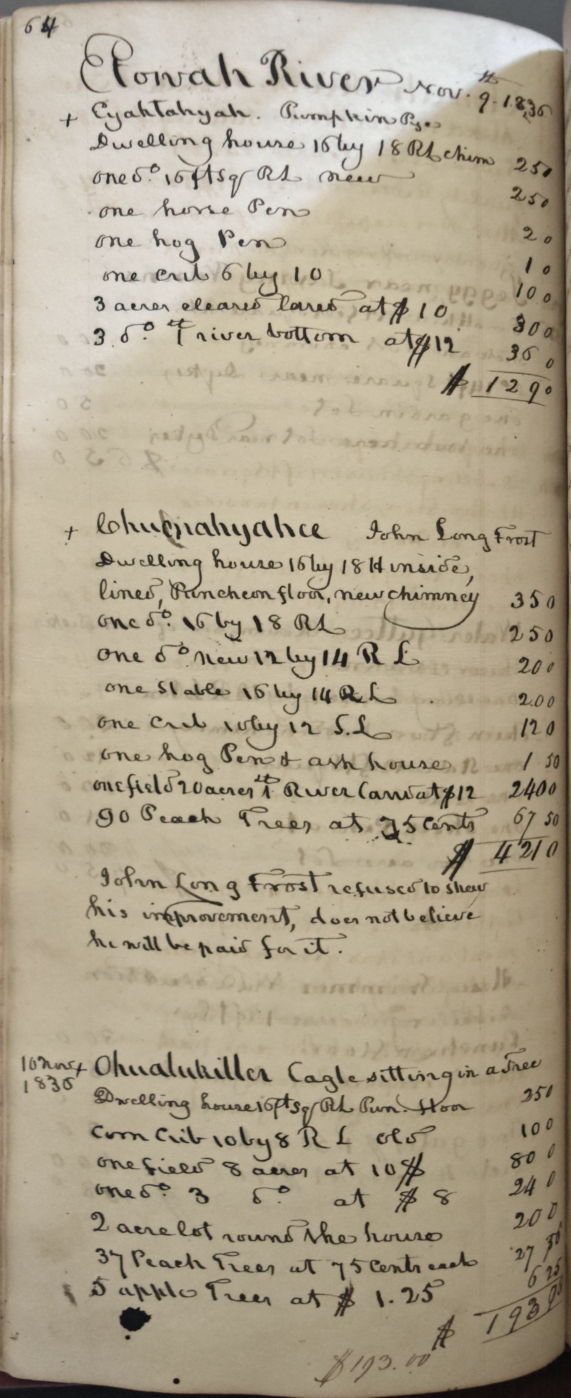 64
Etowah River Nov. 9th 1836
+ Eyahtahyah. Pumpkin Pye.
Dwelling house 16 by 18 RL chim 250
one do. 16 ft sq RL new 250
one horse Pen 20
one hog Pen 10
one crib 6 by 10 100
3 acres cleared land at $10 300
3 do. 1st river bottom at $12 360
$ 1290
+ John Long Frost
Dwelling house 16 by 18 H inside,
lined, Puncheon floor, new chimney 350
one do. 16 by 18 RL 250
one do. new 12 by 14 R L 200
one stable 16 by 14 R L 200
one crib 10 by 12 S.L 120
one hog Pen & ash house 150
one field 20 acres 1st River Land at $12 2400
90 Peach Trees at 75 cents 67 50
$ 4210
John Long Frost refused to shew
his improvement, does not believe
he will be paid for it.
10 Nov + 1836 Ohualukiller Eagle sitting in a Tree
Dwelling house 16 ft sq RL Pun. floor 250
Corn Crib 10 by 8 R L old 100
one field 8 acres at 10$ 800
one do. 3 do. at $ 8 240
2 acre lot round the house 200
37 Peach Trees at 75 Cents each 27
5 apple Trees at $ 1.25 6 25
$ 1930
$193.00